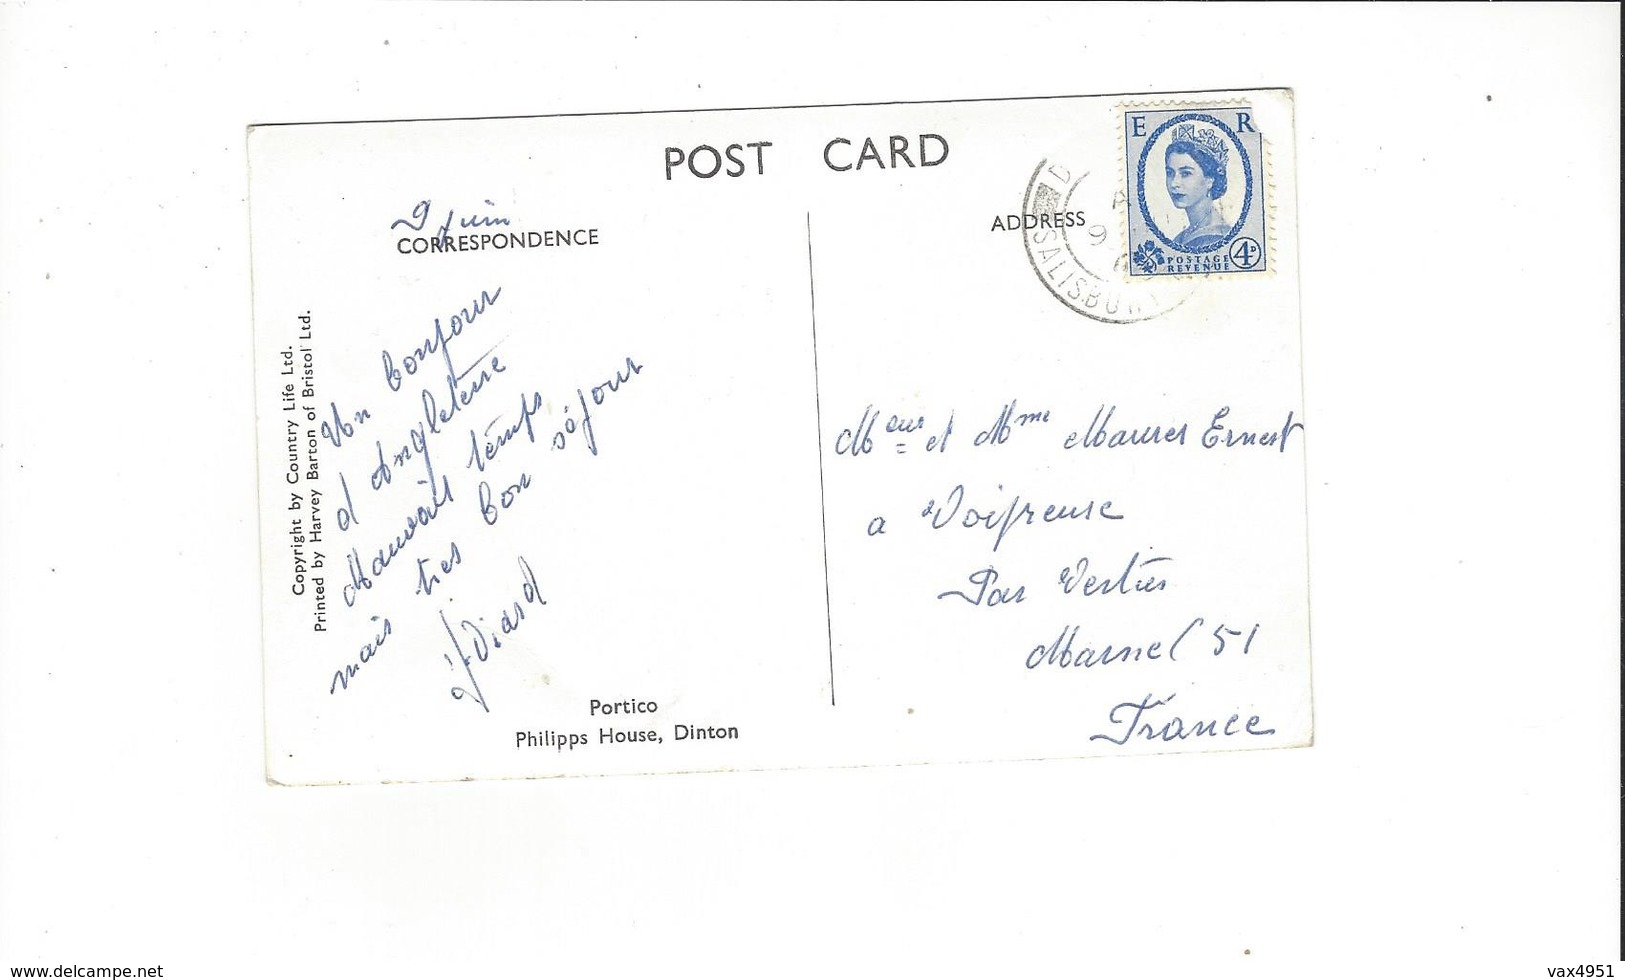 POST CARD
9 juin
CORRESPONDENCE
ADDRESS
E R
POSTAGE
REVENUE
4D
SALISBURY
Copyright by Country Life Ltd.
Printed by Harvey Barton of Bristol Ltd.
Un bonjour
d Angleterre
Mauvais temps
mais tres bon séjour
Viard
Meur et Mme Maurer Ernest
a Voipreuse
Par Vertus
Marne (51
France
Portico
Philipps House, Dinton
www.delcampe.net
vax4951